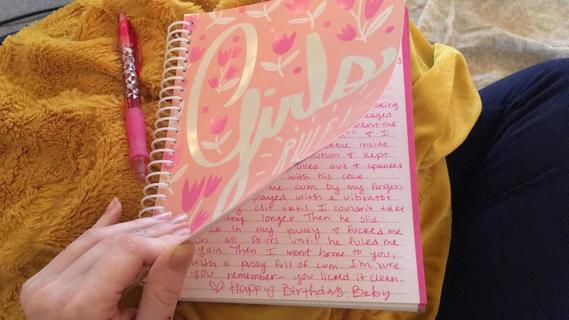 Girls
RULE!
being
want me
& I
came inside
& kept
pulled out & spanked
with his cock.
me cum by my fingers
played with a vibrator
clit until I couldn't take
any longer. Then he slid
in my pussy & fucked me
on all fours until he filled me
again. Then I went home to you,
with a pussy full of cum. I'm sure
you remember - you licked it clean.
♡ Happy Birthday, Baby